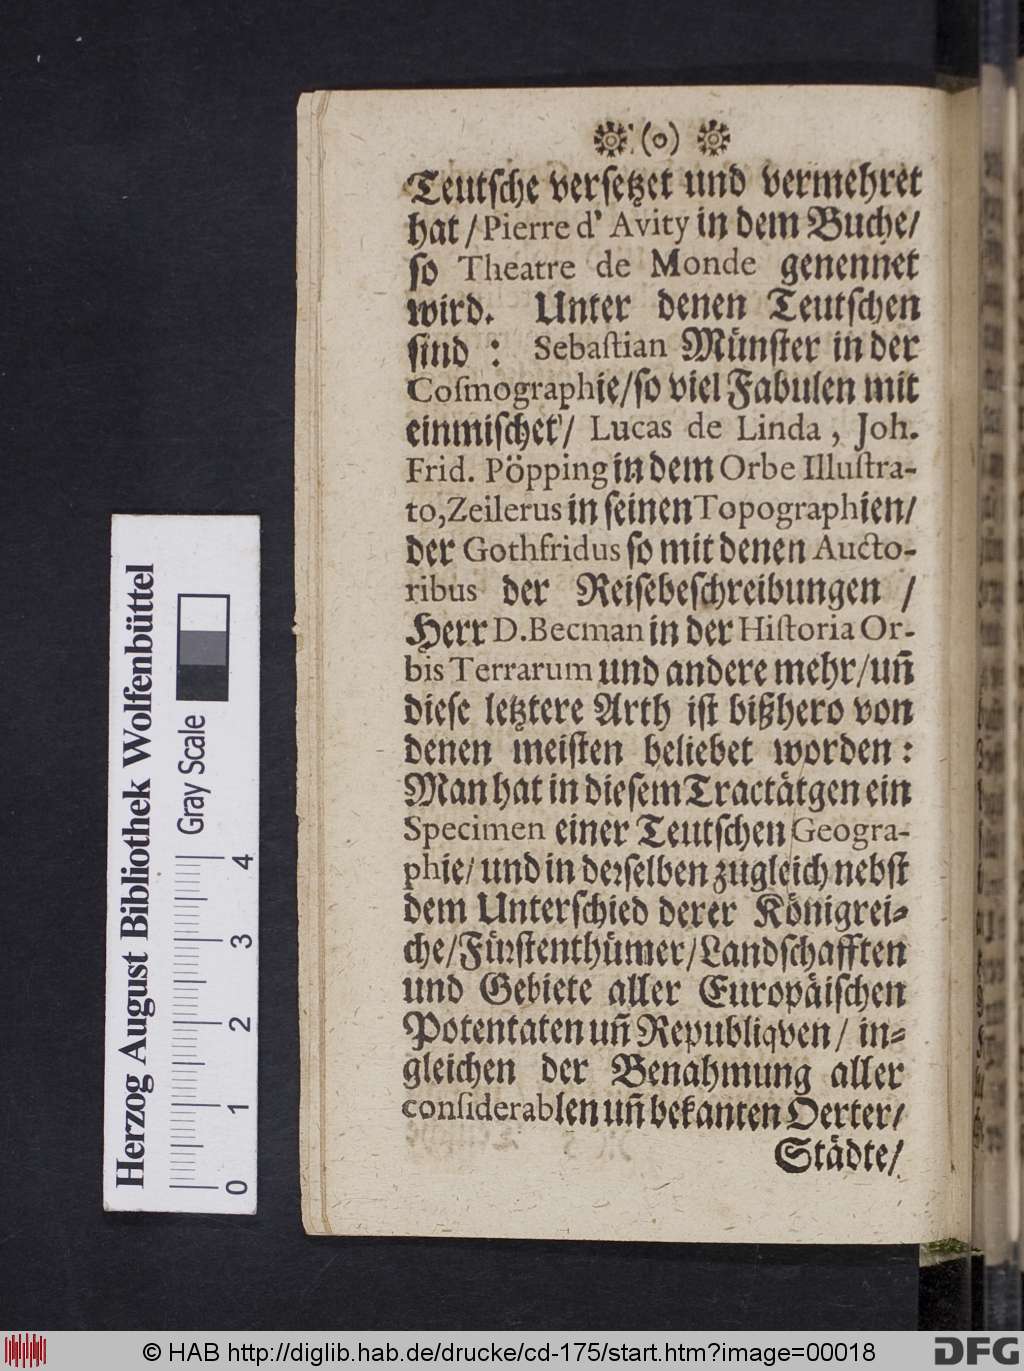 (o)
Teutſche verſetzet und vermehret
hat / Pierre d' Avity in dem Buche/
ſo Theatre de Monde genennet
wird. Unter denen Teutſchen
ſind : Sebaſtian Münſter in der
Coſmographie/ſo viel Fabulen mit
einmiſchet/ Lucas de Linda, Joh.
Frid. Pöpping in dem Orbe Illuſtra-
to, Zeilerus in ſeinen Topographien/
der Gothfridus ſo mit denen Aucto-
ribus der Reiſebeſchreibungen /
Herr D. Becman in der Hiſtoria Or-
bis Terrarum und andere mehr/ un̄
dieſe letztere Arth iſt bißhero von
denen meiſten beliebet worden:
Man hat in dieſem Tractätgen ein
Specimen einer Teutſchen Geogra-
phie/ und in derſelben zugleich nebſt
dem Unterſchied derer Königrei⸗
che/Fürſtenthümer/Landſchafften
und Gebiete aller Europäiſchen
Potentaten un̄ Republiqven/ in⸗
gleichen der Benahmung aller
conſiderablen un̄ bekanten Oerter/
Städte/
Herzog August Bibliothek Wolfenbüttel
Gray Scale
0 1 2 3 4
© HAB http://diglib.hab.de/drucke/cd-175/start.htm?image=00018
DFG